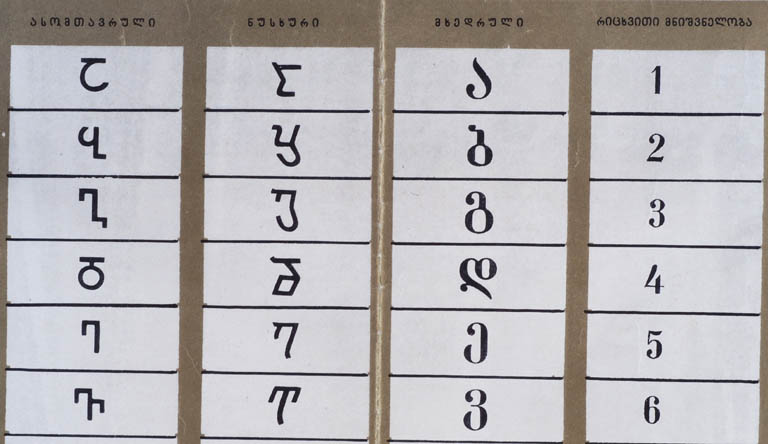 ასომთავრული ნუსხური მხედრული რიცხვითი მნიშვნელობა
Ⴀ ⴀ ა 1
Ⴁ ⴁ ბ 2
Ⴂ ⴂ გ 3
Ⴃ ⴃ დ 4
Ⴄ ⴄ ე 5
Ⴅ ⴅ ვ 6